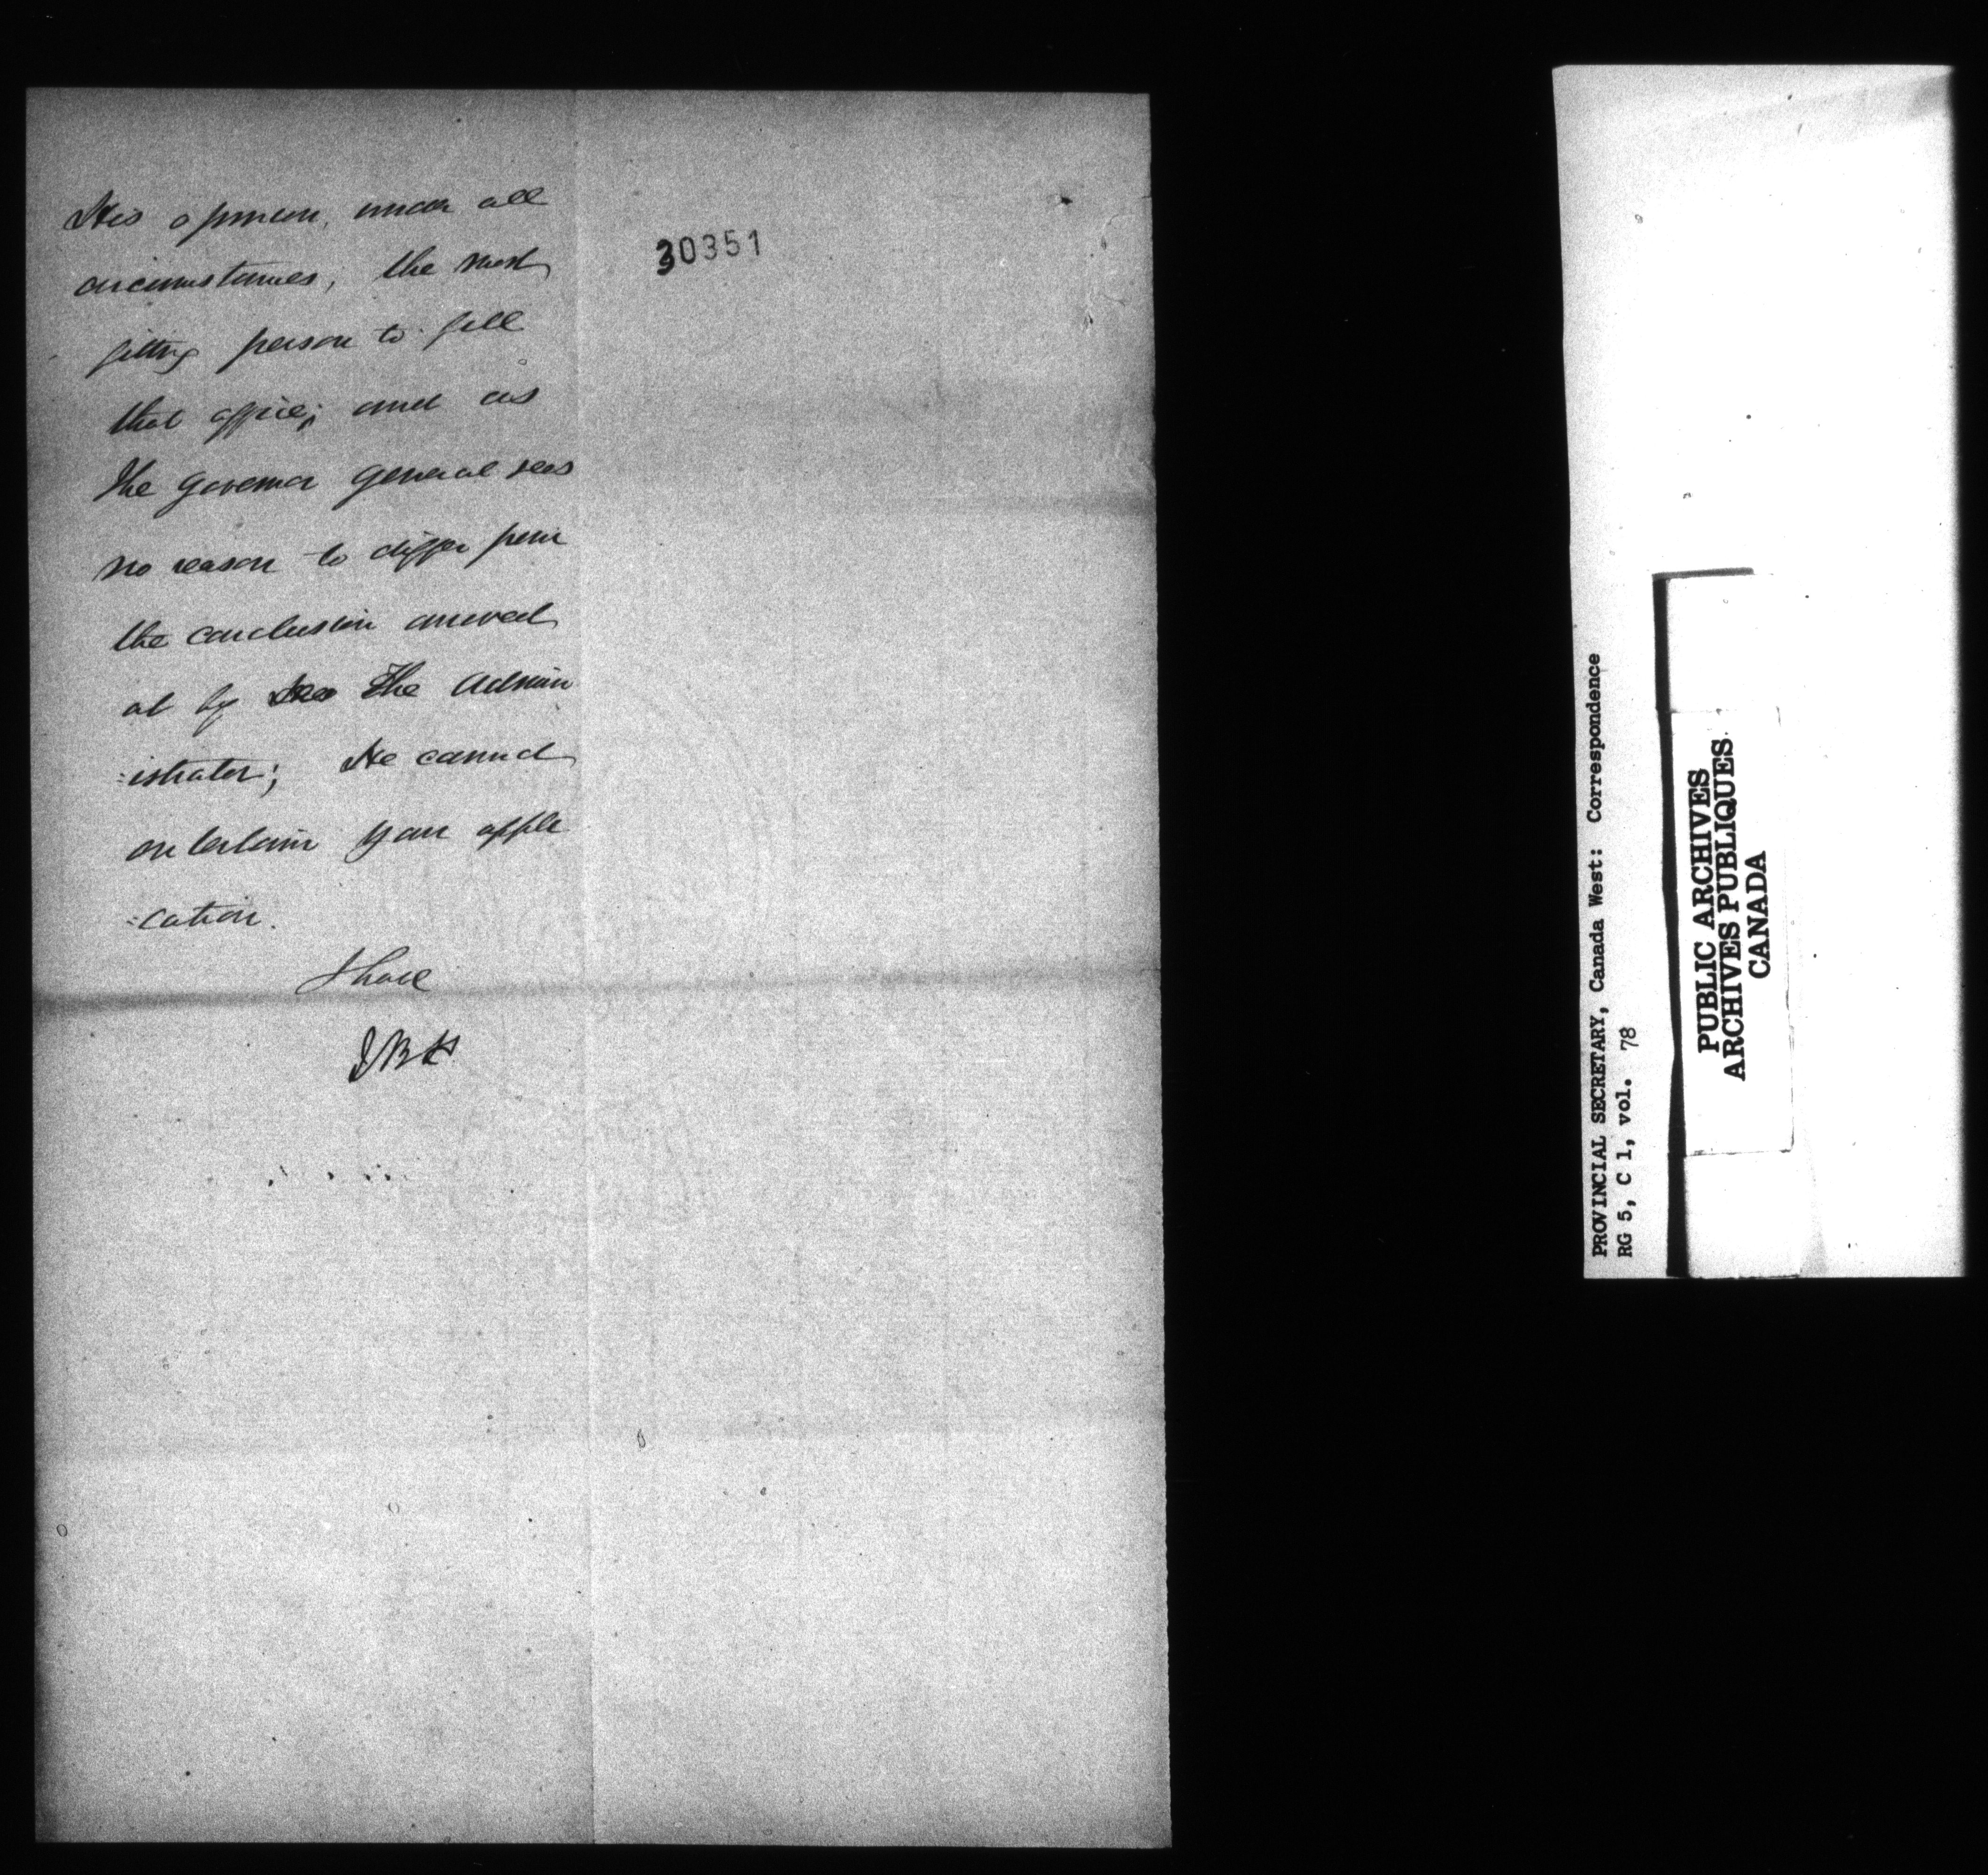 His opinion, under all
circumstances, the most
fitting person to fill
that office; and as
The Governor General sees
no reason to differ from
the conclusion arrived
at by The Admin
:istrator; He cannot
entertain your appli
:cation.
I have
JBH
30351
PROVINCIAL SECRETARY, Canada West: Correspondence
RG 5, C 1, vol. 78
PUBLIC ARCHIVES
ARCHIVES PUBLIQUES
CANADA